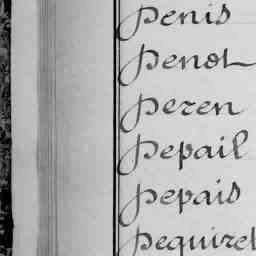 Denis
Denot
Deren
Depail
Depais
Dequiret